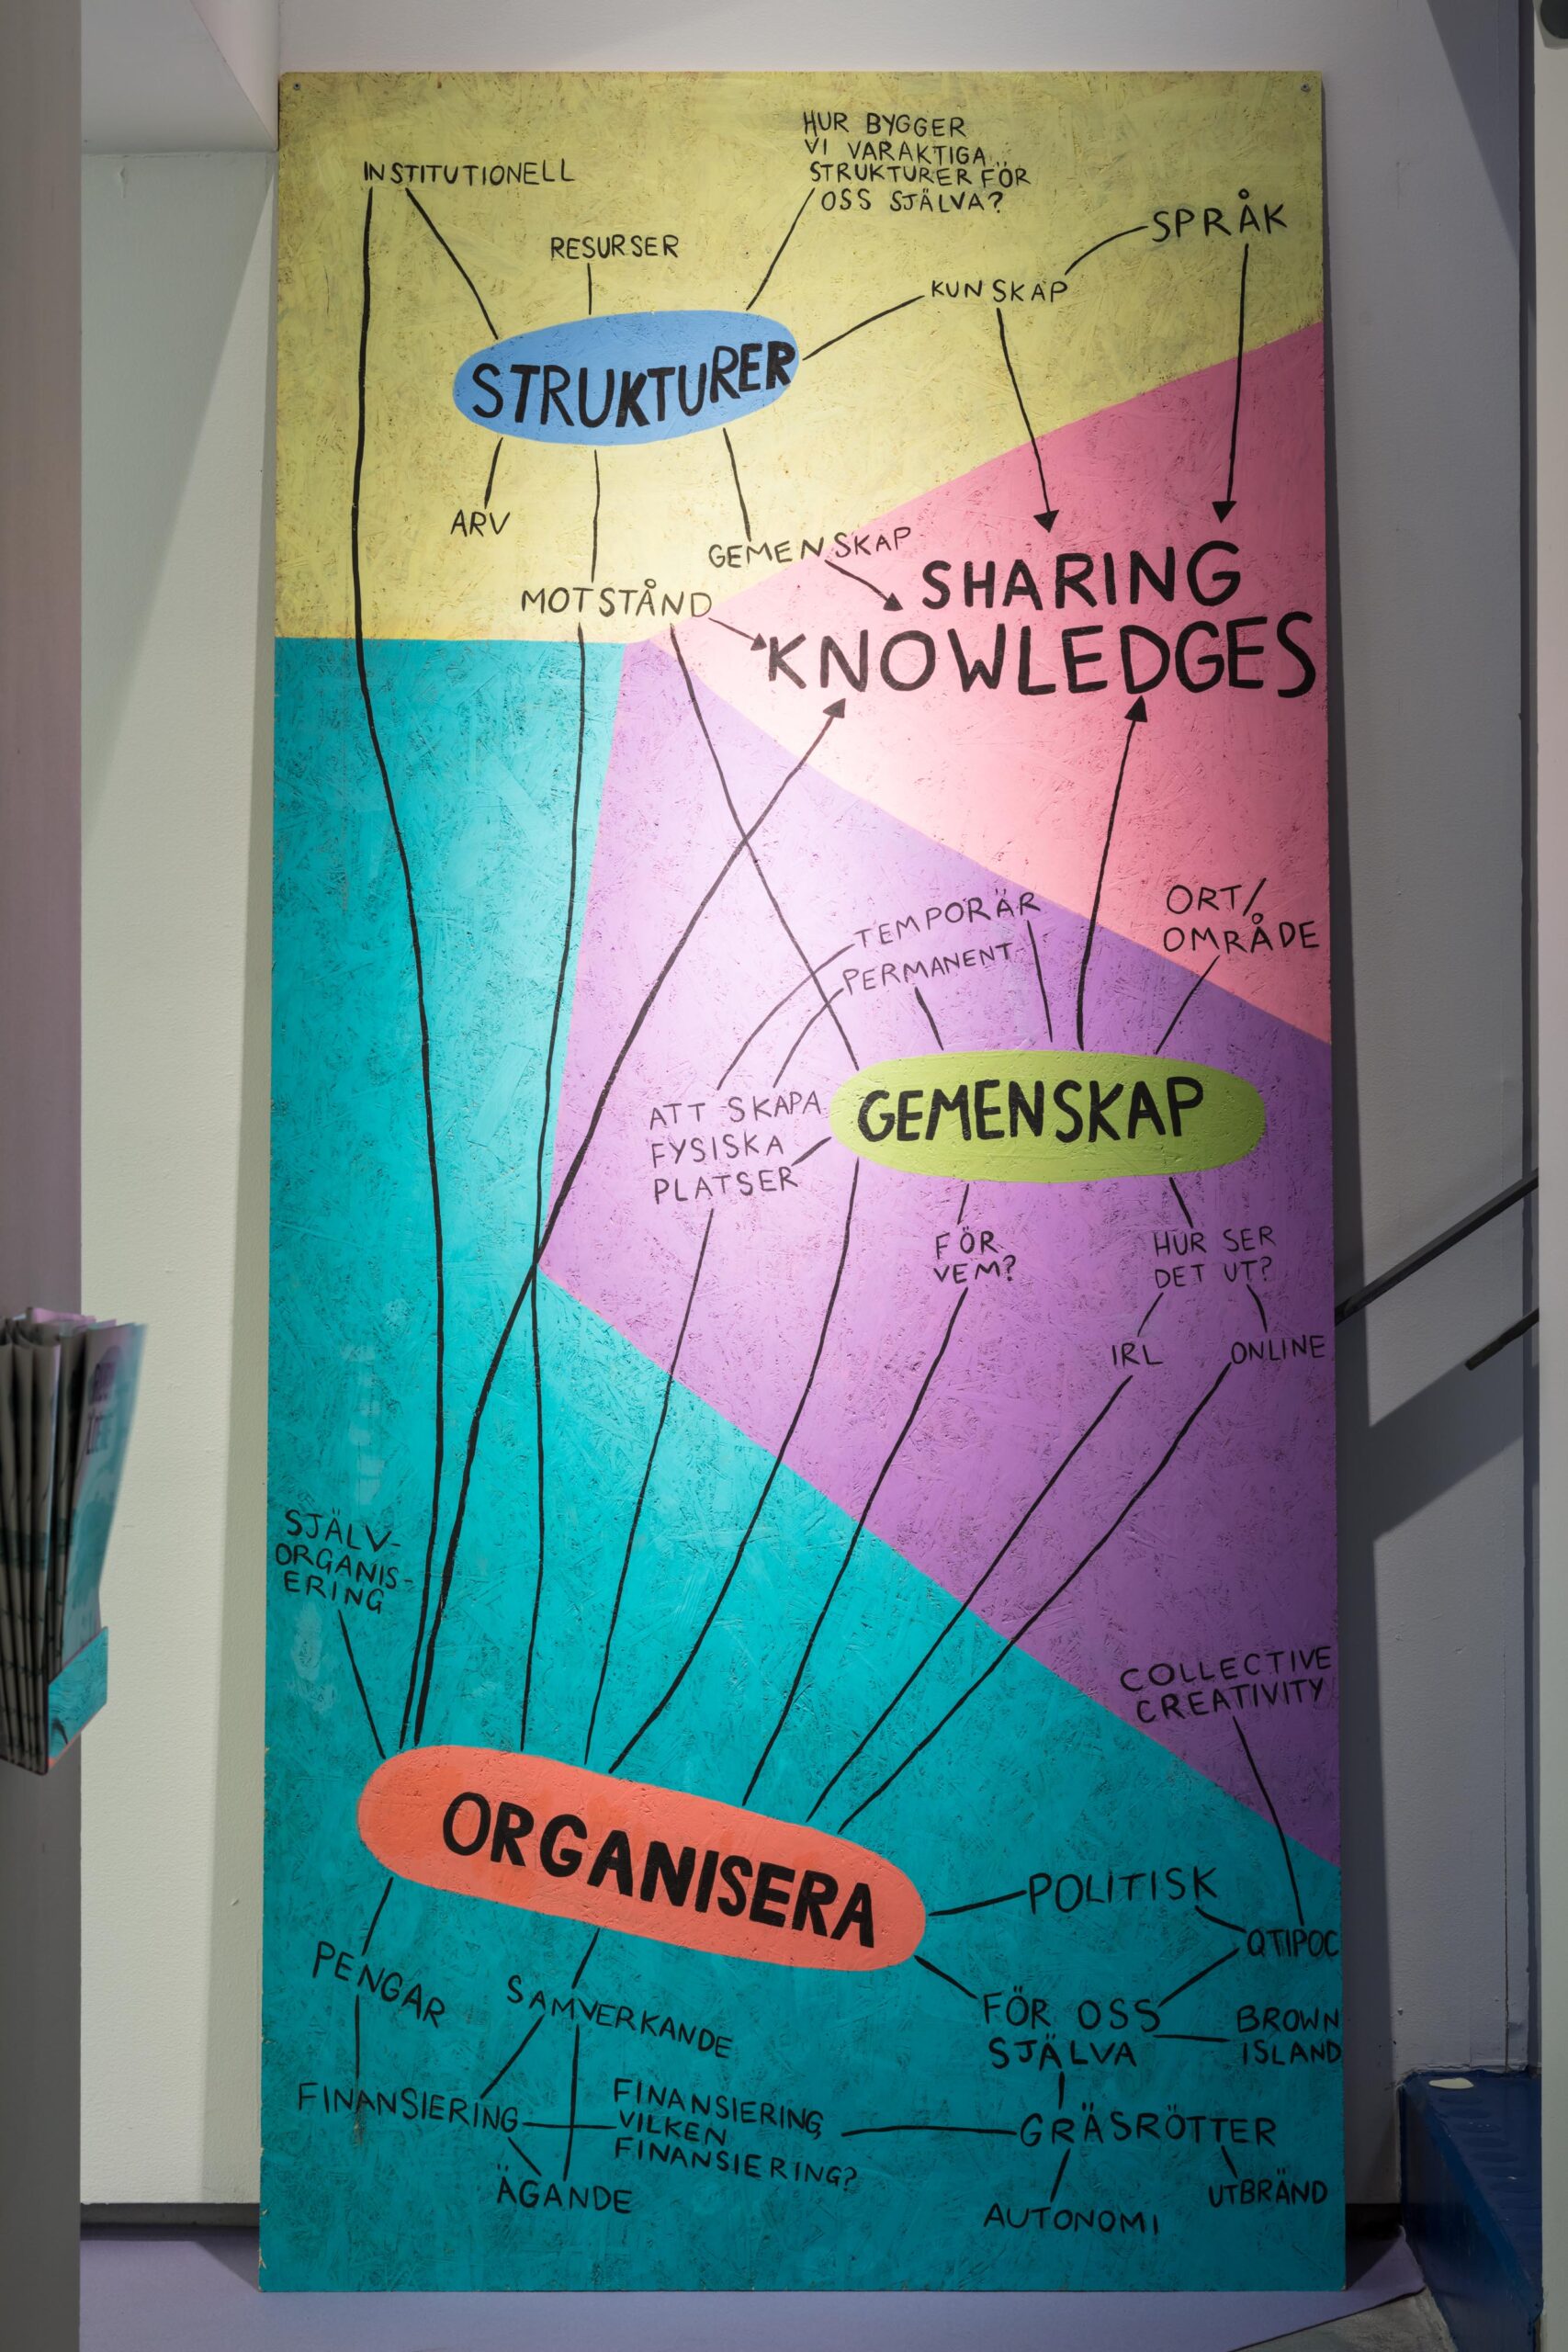 INSTITUTIONELL
HUR BYGGER
VI VARAKTIGA
STRUKTURER FÖR
OSS SJÄLVA?
RESURSER
SPRÅK
KUNSKAP
STRUKTURER
ARV
GEMENSKAP
MOTSTÅND
SHARING
KNOWLEDGES
TEMPORÄR
PERMANENT
ORT/
OMRÅDE
ATT SKAPA
FYSISKA
PLATSER
GEMENSKAP
FÖR
VEM?
HUR SER
DET UT?
IRL
ONLINE
SJÄLV-
ORGANIS-
ERING
COLLECTIVE
CREATIVITY
ORGANISERA
POLITISK
QTIPOC
PENGAR
SAMVERKANDE
FÖR OSS
SJÄLVA
BROWN
ISLAND
FINANSIERING
FINANSIERING,
VILKEN
FINANSIERING?
GRÄSRÖTTER
ÄGANDE
AUTONOMI
UTBRÄND